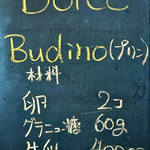 Dolce
Budino(プリン)
材料
卵 2コ
グラニュー糖 60g
牛乳 400cc